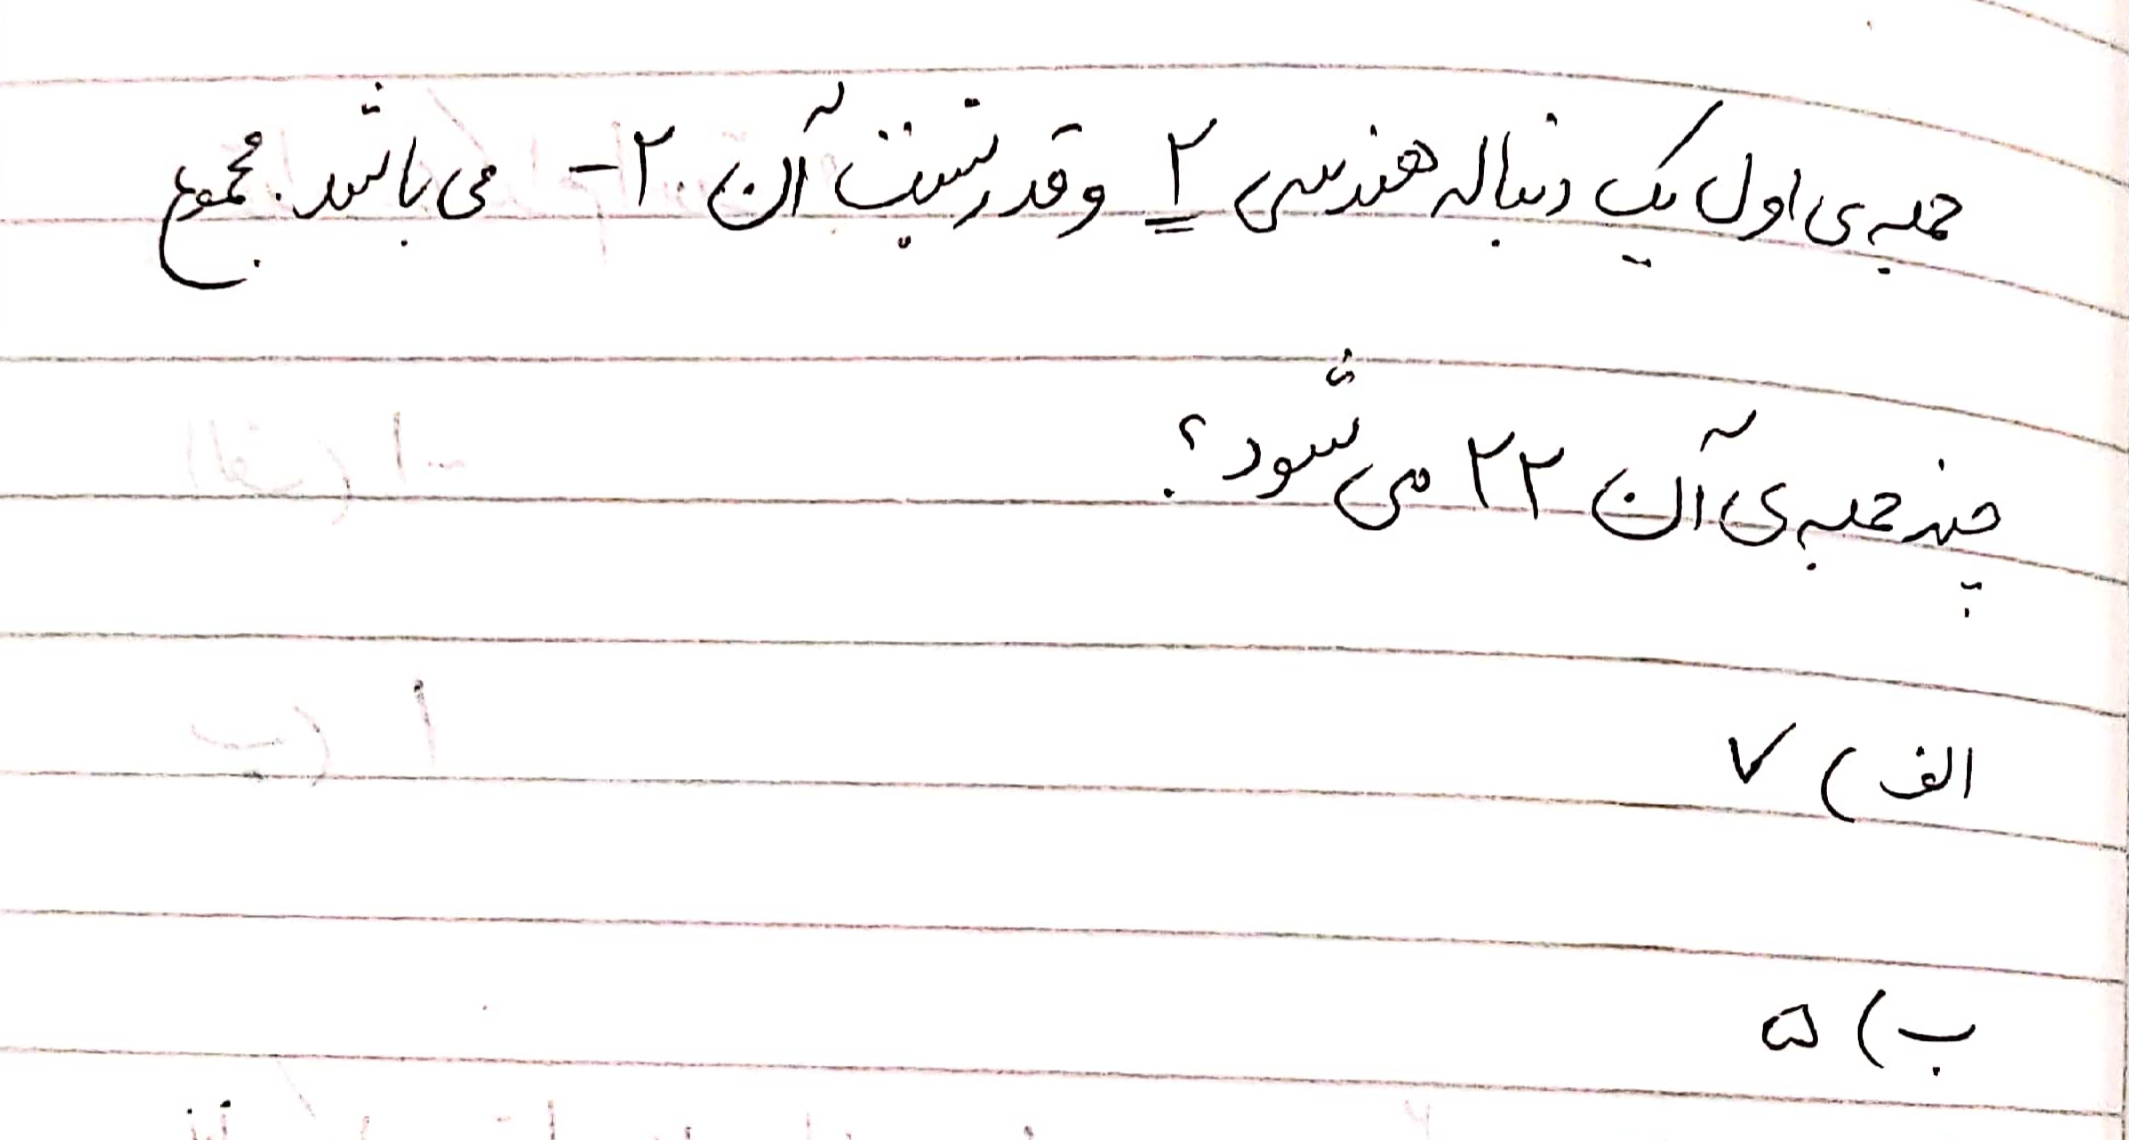 جمله‌ی اول یک دنباله هندسی ۲ و قدر نسبت آن ۲- می باشد. مجموع
چند جمله‌ی آن ۲۲ می شود؟
الف) ۷
ب) ۵